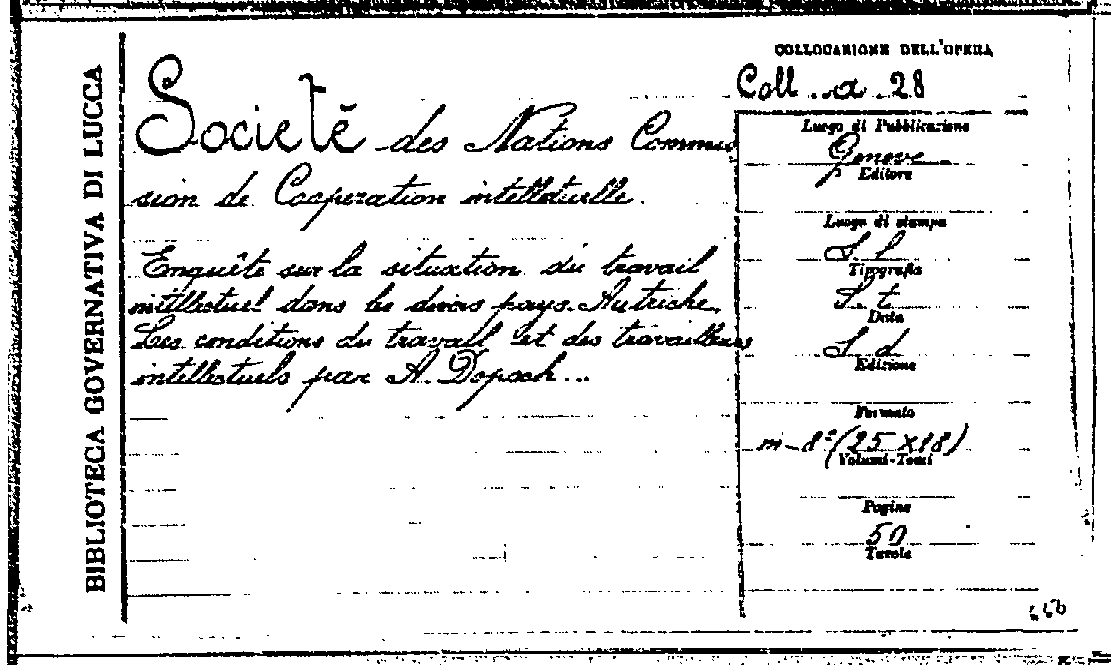 BIBLIOTECA GOVERNATIVA DI LUCCA
COLLOCAZIONE DELL'OPERA
Coll. a. 28
Societé des Nations Commis
sion de Cooperation intellectuelle.
Enquête sur la situation du travail
intellectuel dans les divers pays. Autriche.
Les conditions du travail et des travailleurs
intellectuels par A. Dopsch...
Luogo di Pubblicazione
Geneve
Editore
Luogo di stampa
S. l
Tipografia
S. t.
Data
S. d
Edizione
Formato
m-8° (25 x 18)
Volumi-Tomi
Pagine
50
Tavole